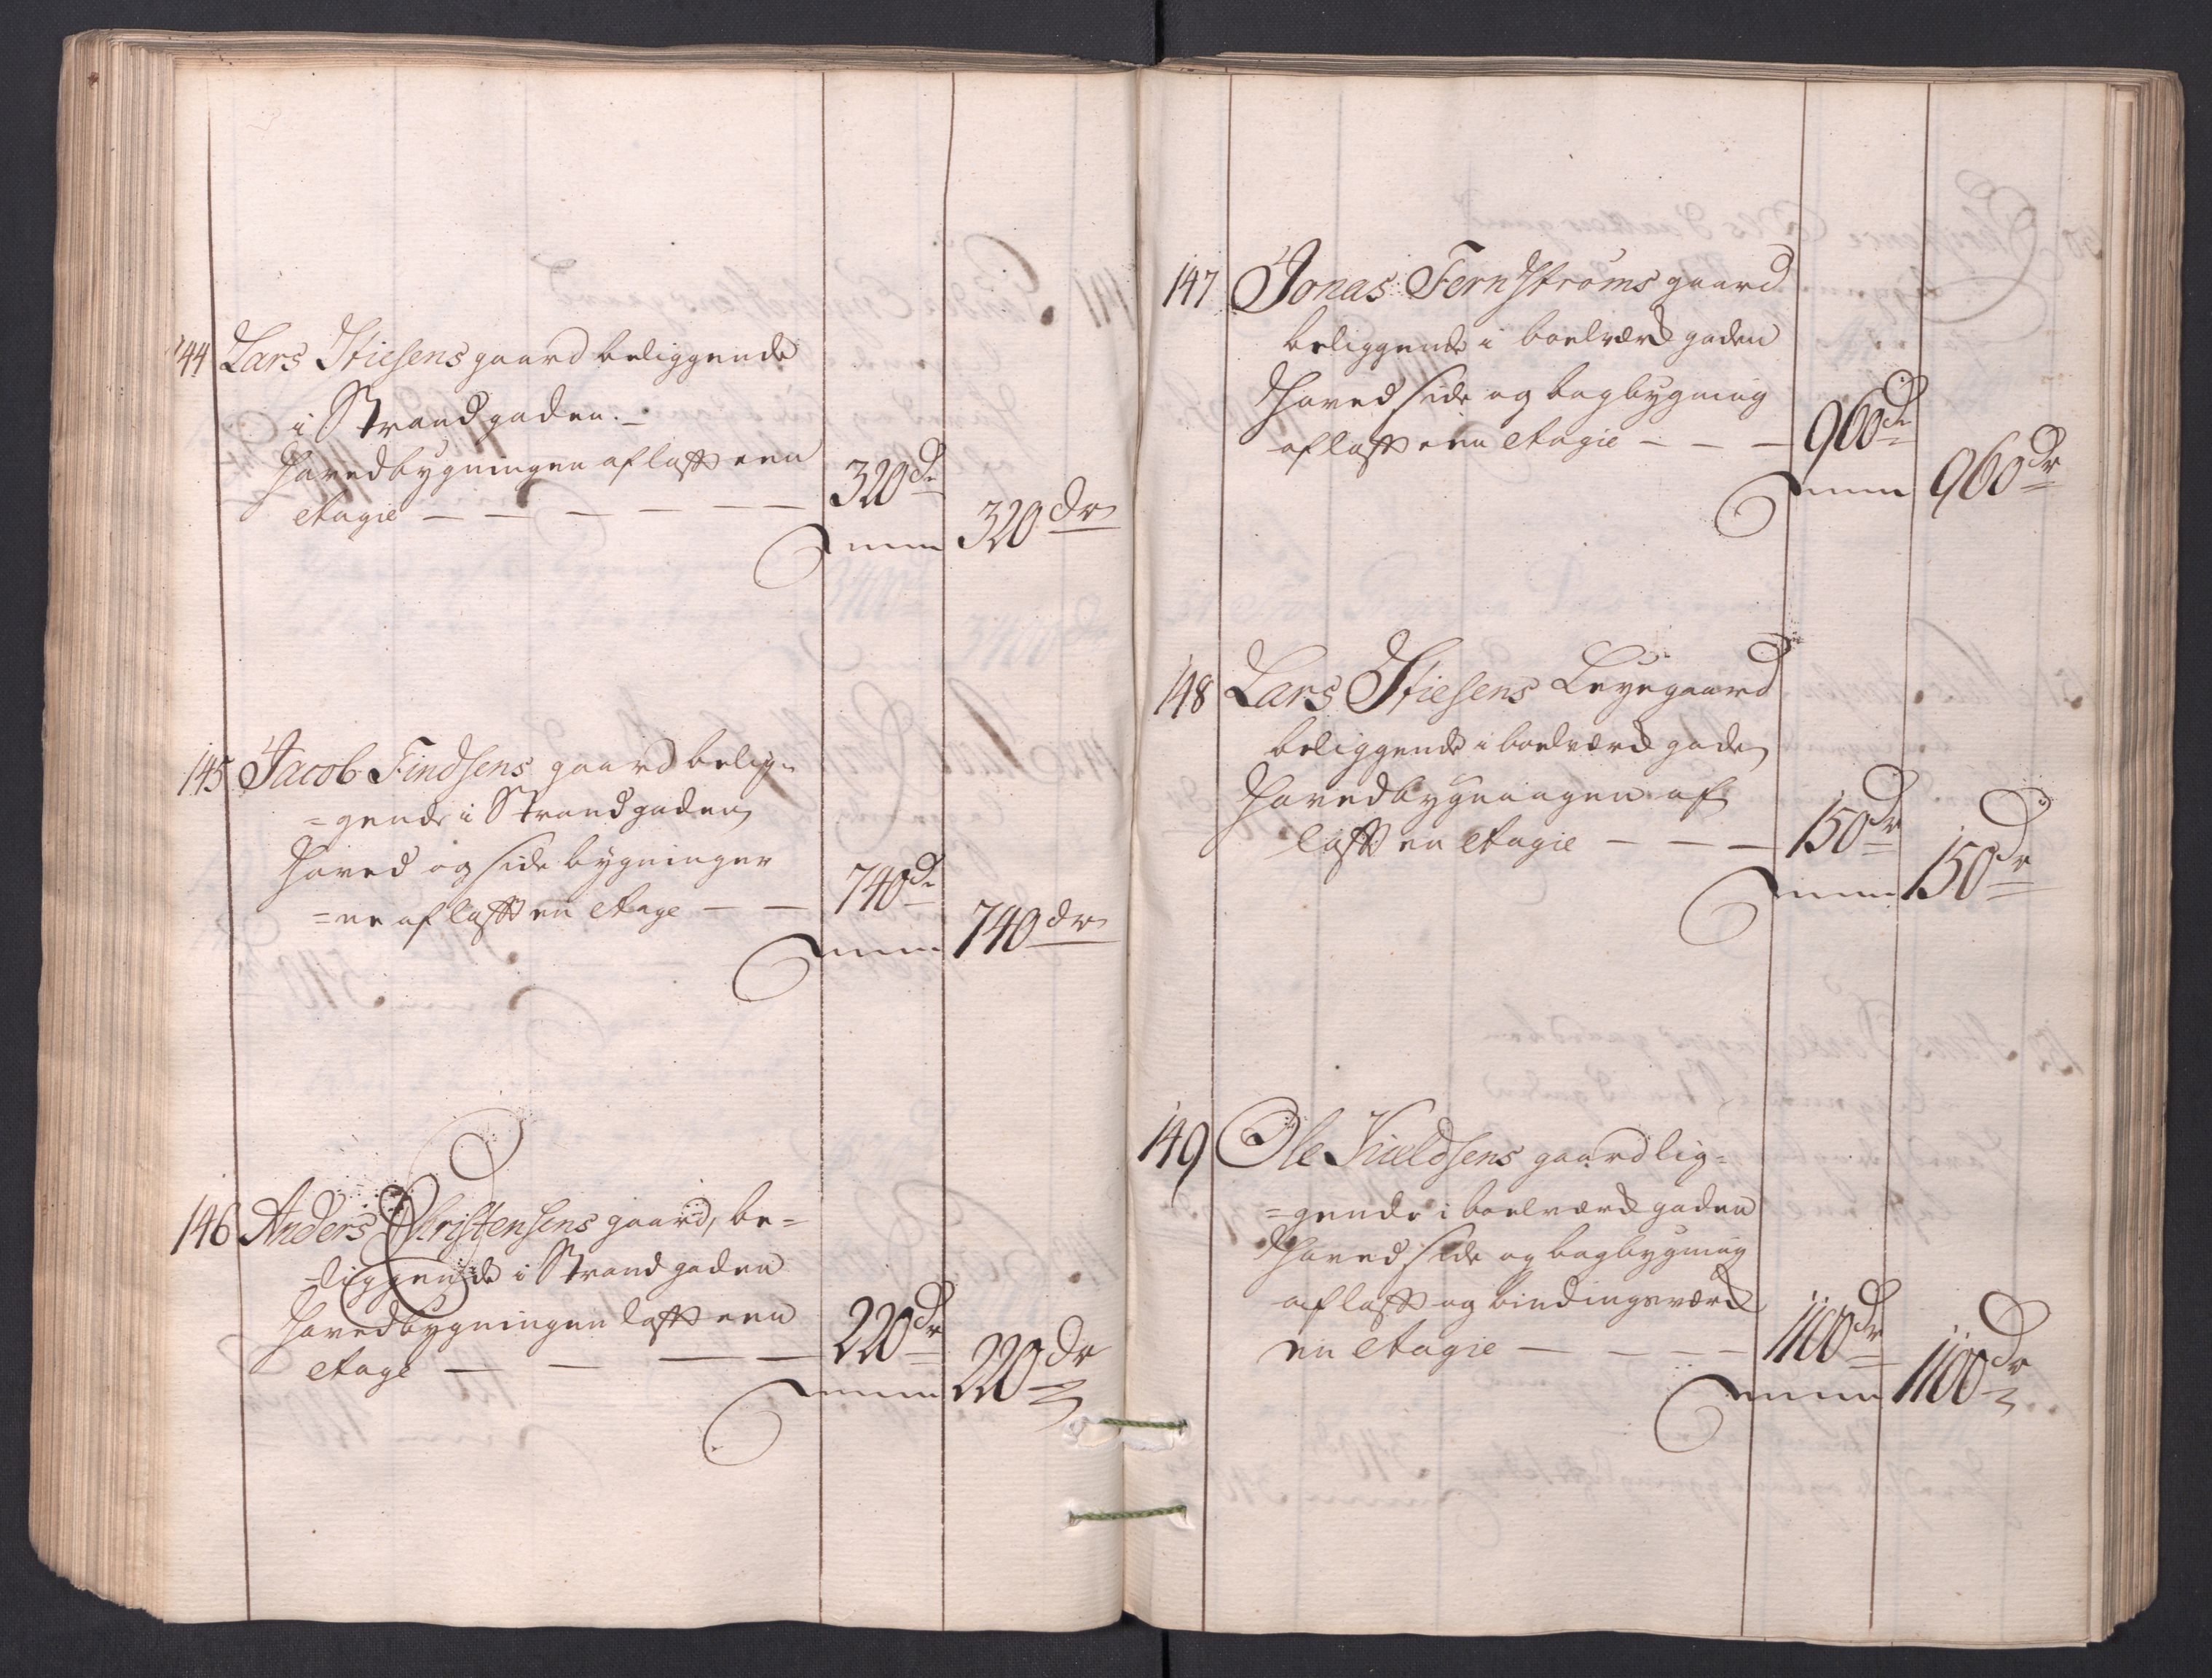 144 Lars Stiesens gaard beliggende
i Strandgaden.
Hovedbygningen af laft een
etagie — — — — — — 320 dr
Summa 320 dr
145 Jacob Findsens gaard belig=
=gende i Strandgaden
Hoved og side bygninger
=ne af laft en etage — — 740 dr
Summa 740 dr
146 Anders Christensens gaard, be=
=liggende i Strandgaden
Hovedbygningen laft een
etage — — — — 220 dr
Summa 220 dr
147 Jonas Fernstrøms gaard
beliggende i boelværksgaden
Hoved side og bagbygning
af laft een etagie — — — 960 dr
Summa 960 dr
148 Lars Stiesens Leyegaard
beliggende i boelværksgaden
Hovedbygningen af
laft en etagie — — — 150 dr
Summa 150 dr
149 Ole Kieldsens gaard lig=
=gende i boelværksgaden
Hoved side og bagbygning
af laft og bindingsværk
en etagie — — — — 1100 dr
Summa 1100 dr